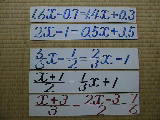 1.6x-0.7=1.4x+0.3
2x-1=0.5x+3.5
5/3x-1/2=2/3x-1
x+1/2=1/3x+1
x+3/3=2x-3/2-1/6